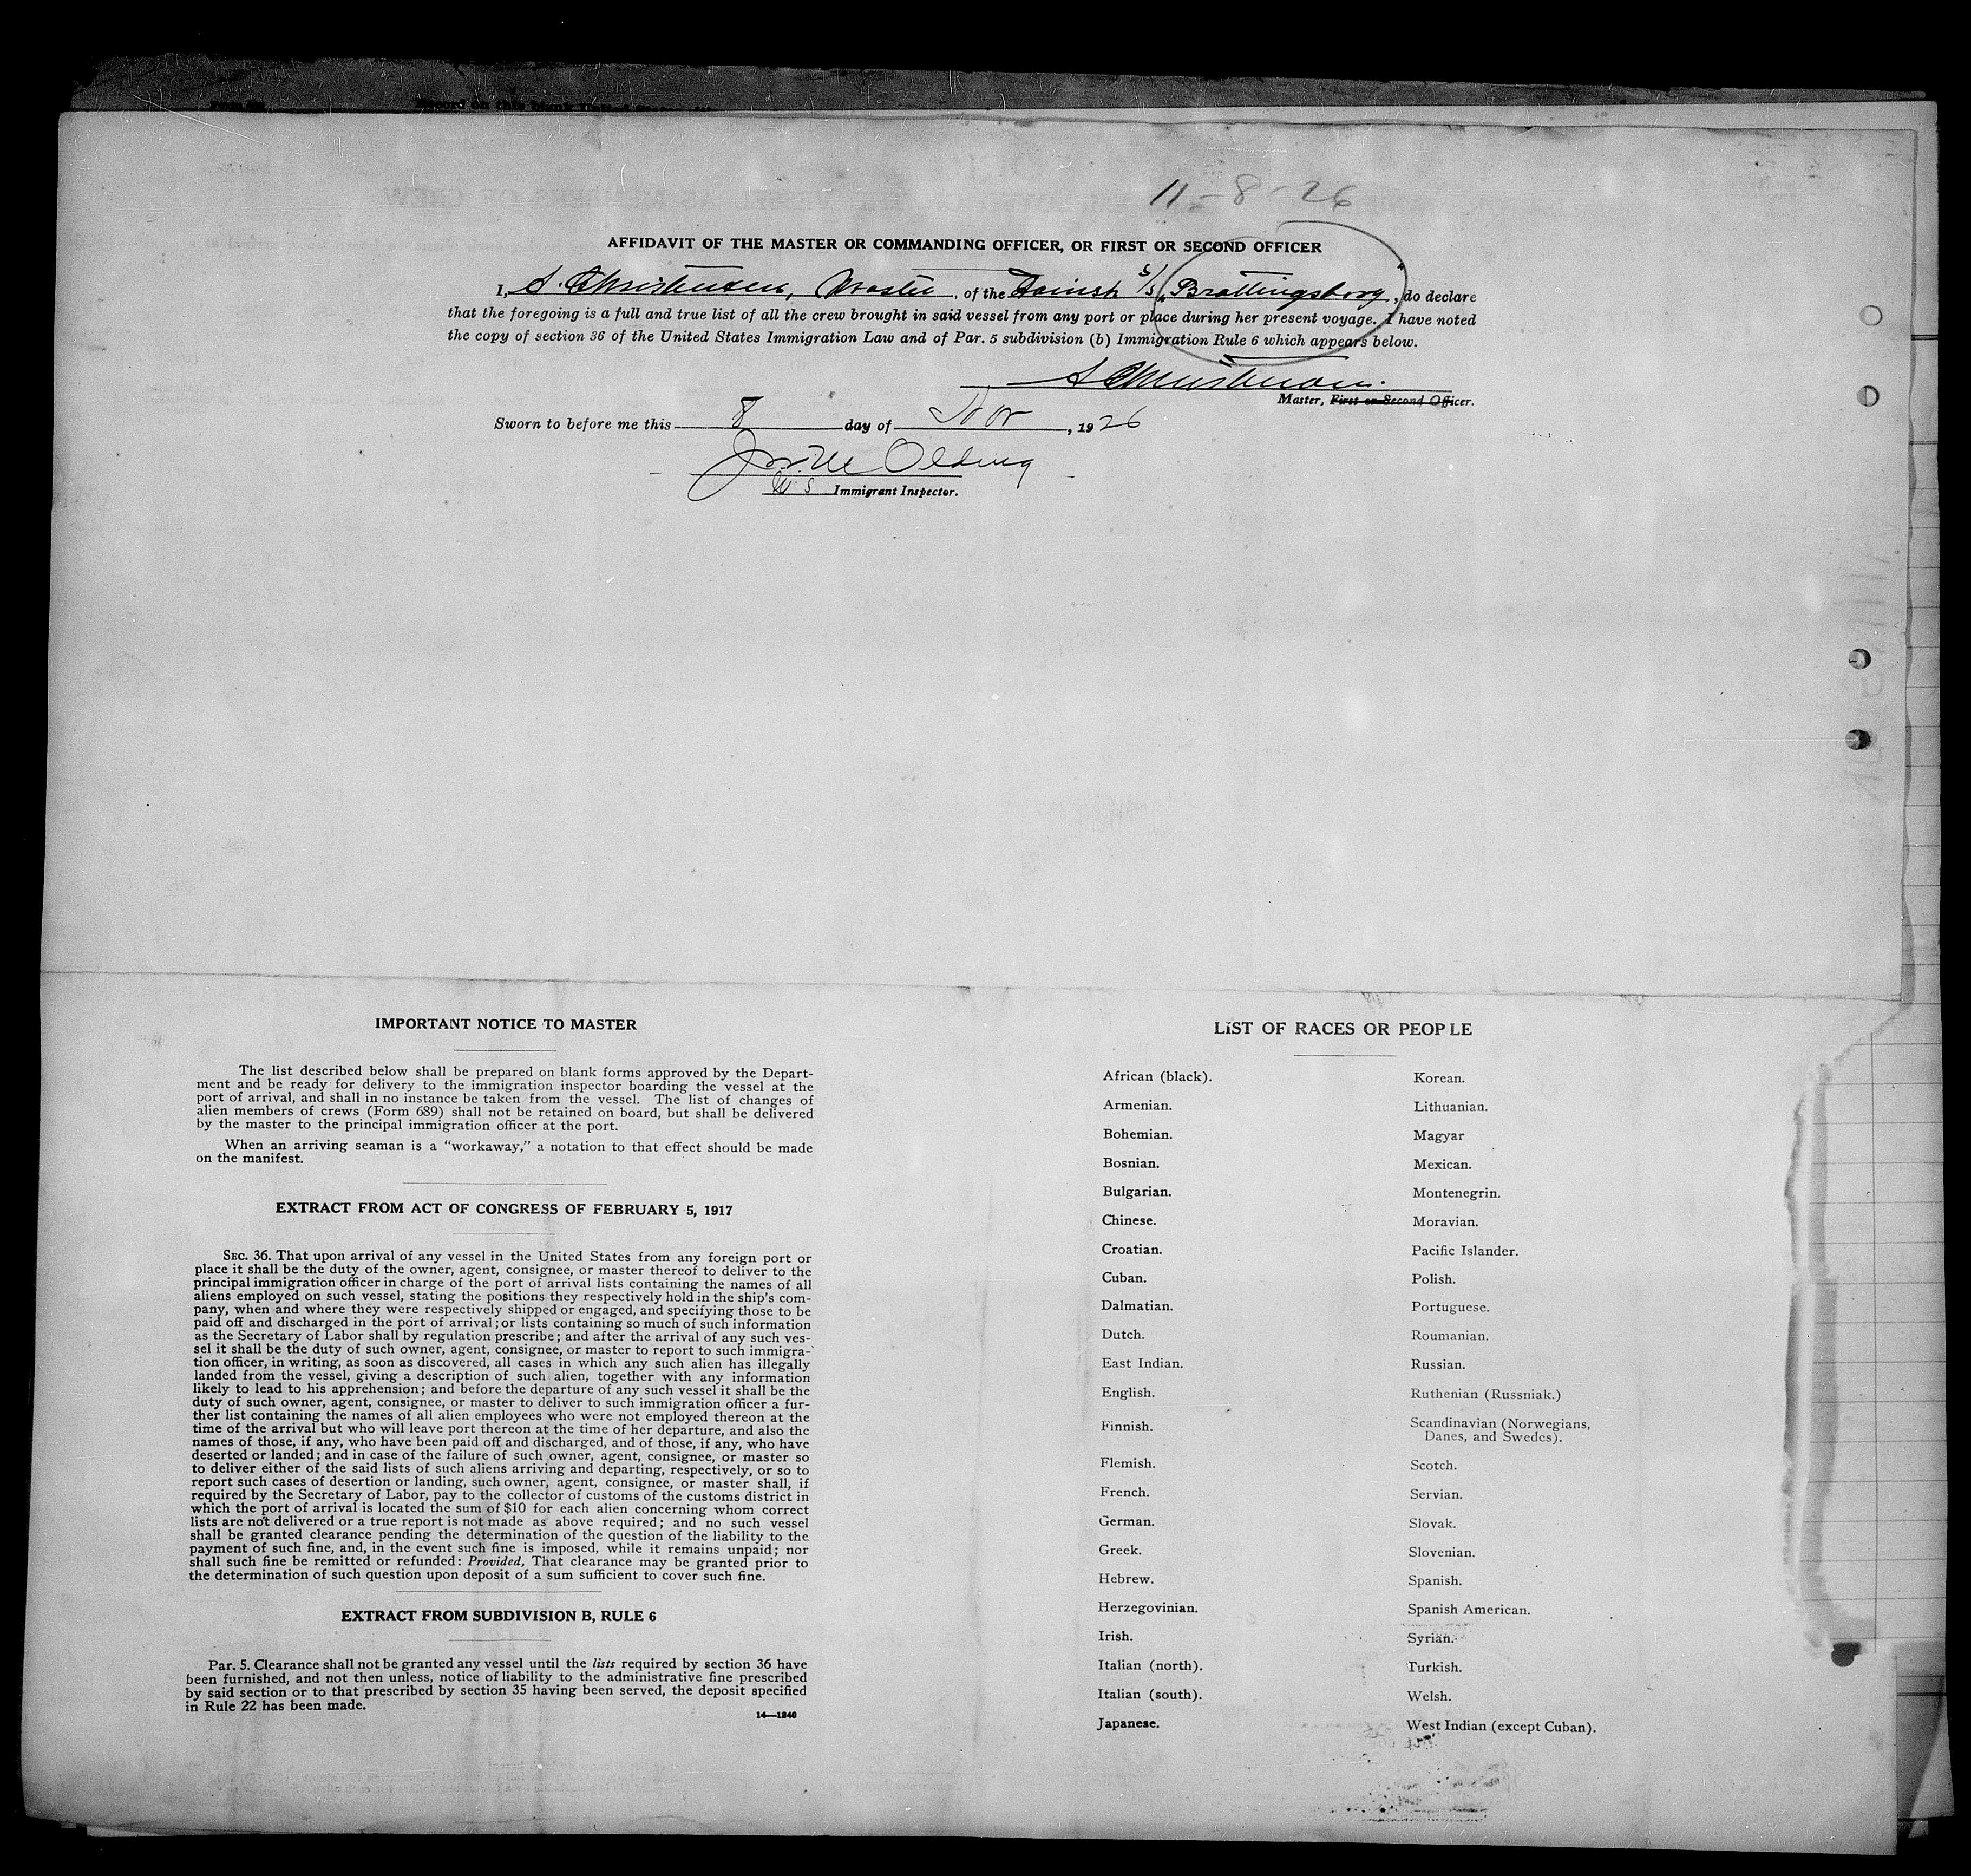 11-8-26
AFFIDAVIT OF THE MASTER OR COMMANDING OFFICER, OR FIRST OR SECOND OFFICER
I, S. Christensen, Master, of the Danish S/S "Brattingsborg", do declare
that the foregoing is a full and true list of all the crew brought in said vessel from any port or place during her present voyage. I have noted
the copy of section 36 of the United States Immigration Law and of Par. 5 subdivision (b) Immigration Rule 6 which appears below.
S Christensen.
Master, First or Second Officer.
Sworn to before me this 8 day of Nov, 1926
Immigrant Inspector.
IMPORTANT NOTICE TO MASTER
The list described below shall be prepared on blank forms approved by the Depart-
ment and be ready for delivery to the immigration inspector boarding the vessel at the
port of arrival, and shall in no instance be taken from the vessel. The list of changes of
alien members of crews (Form 689) shall not be retained on board, but shall be delivered
by the master to the principal immigration officer at the port.
When an arriving seaman is a "workaway," a notation to that effect should be made
on the manifest.
EXTRACT FROM ACT OF CONGRESS OF FEBRUARY 5, 1917
SEC. 36. That upon arrival of any vessel in the United States from any foreign port or
place it shall be the duty of the owner, agent, consignee, or master thereof to deliver to the
principal immigration officer in charge of the port of arrival lists containing the names of all
aliens employed on such vessel, stating the positions they respectively hold in the ship's com-
pany, when and where they were respectively shipped or engaged, and specifying those to be
paid off and discharged in the port of arrival; or lists containing so much of such information
as the Secretary of Labor shall by regulation prescribe; and after the arrival of any such ves-
sel it shall be the duty of such owner, agent, consignee, or master to report to such immigra-
tion officer, in writing, as soon as discovered, all cases in which any such alien has illegally
landed from the vessel, giving a description of such alien, together with any information
likely to lead to his apprehension; and before the departure of any such vessel it shall be the
duty of such owner, agent, consignee, or master to deliver to such immigration officer a fur-
ther list containing the names of all alien employees who were not employed thereon at the
time of the arrival but who will leave port thereon at the time of her departure, and also the
names of those, if any, who have been paid off and discharged, and of those, if any, who have
deserted or landed; and in case of the failure of such owner, agent, consignee, or master so
to deliver either of the said lists of such aliens arriving and departing, respectively, or so to
report such cases of desertion or landing, such owner, agent, consignee, or master shall, if
required by the Secretary of Labor, pay to the collector of customs of the customs district in
which the port of arrival is located the sum of $10 for each alien concerning whom correct
lists are not delivered or a true report is not made as above required; and no such vessel
shall be granted clearance pending the determination of the question of the liability to the
payment of such fine, and, in the event such fine is imposed, while it remains unpaid; nor
shall such fine be remitted or refunded: Provided, That clearance may be granted prior to
the determination of such question upon deposit of a sum sufficient to cover such fine.
EXTRACT FROM SUBDIVISION B, RULE 6
Par. 5. Clearance shall not be granted any vessel until the lists required by section 36 have
been furnished, and not then unless, notice of liability to the administrative fine prescribed
by said section or to that prescribed by section 35 having been served, the deposit specified
in Rule 22 has been made.
14—1240
LIST OF RACES OR PEOPLE
African (black).
Armenian.
Bohemian.
Bosnian.
Bulgarian.
Chinese.
Croatian.
Cuban.
Dalmatian.
Dutch.
East Indian.
English.
Finnish.
Flemish.
French.
German.
Greek.
Hebrew.
Herzegovinian.
Irish.
Italian (north).
Italian (south).
Japanese.
Korean.
Lithuanian.
Magyar
Mexican.
Montenegrin.
Moravian.
Pacific Islander.
Polish.
Portuguese.
Roumanian.
Russian.
Ruthenian (Russniak.)
Scandinavian (Norwegians,
Danes, and Swedes).
Scotch.
Servian.
Slovak.
Slovenian.
Spanish.
Spanish American.
Syrian.
Turkish.
Welsh.
West Indian (except Cuban).